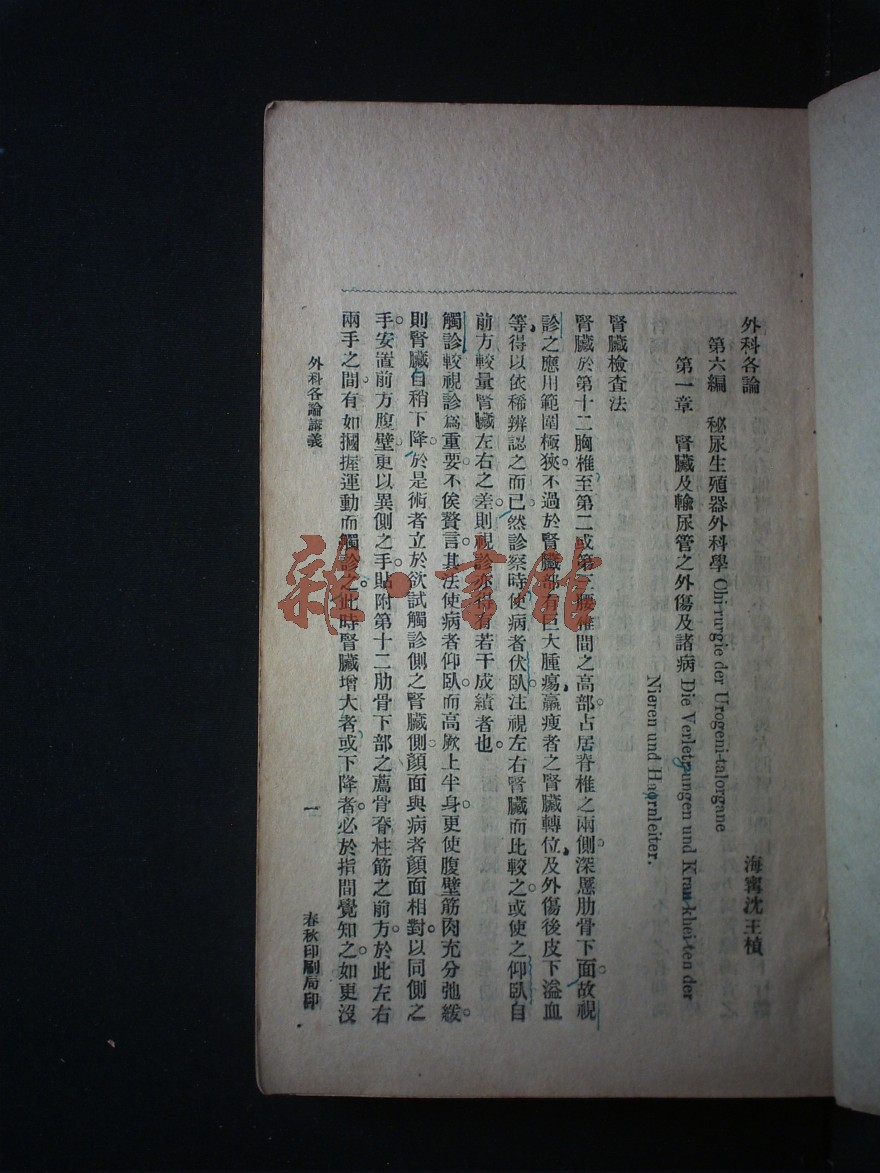 外科各論
海寗沈王楨
第六編 秘尿生殖器外科學 Chi-rurgie der Urogeni-talorgane
第一章 腎臟及輸尿管之外傷及諸病 Die Verletzungen und Kran-khei-ten der
Nieren und Haernleiter.
腎臟檢查法
腎臟於第十二胸椎至第二或第三腰椎間之高部占居脊椎之兩側深懸肋骨下面故視
診之應用範圍極狹不過於腎臟部有巨大腫瘍羸瘦者之腎臟轉位及外傷後皮下溢血
等得以依稀辨認之而已然診察時使病者伏臥注視左右腎臟而比較之或使之仰臥自
前方較量腎臟左右之差則視診亦得有若干成績者也
觸診較視診爲重要不俟贅言其法使病者仰臥而高厥上半身更使腹壁筋肉充分弛緩
則腎臟自稍下降於是術者立於欲試觸診側之腎臟側顏面與病者顏面相對以同側之
手安置前方腹壁更以異側之手貼附第十二肋骨下部之薦骨脊柱筋之前方於此左右
兩手之間有如摑握運動而觸診之此時腎臟增大者或下降者必於指間覺知之如更沒
外科各論講義
一
春秋印刷局印
雜·書館